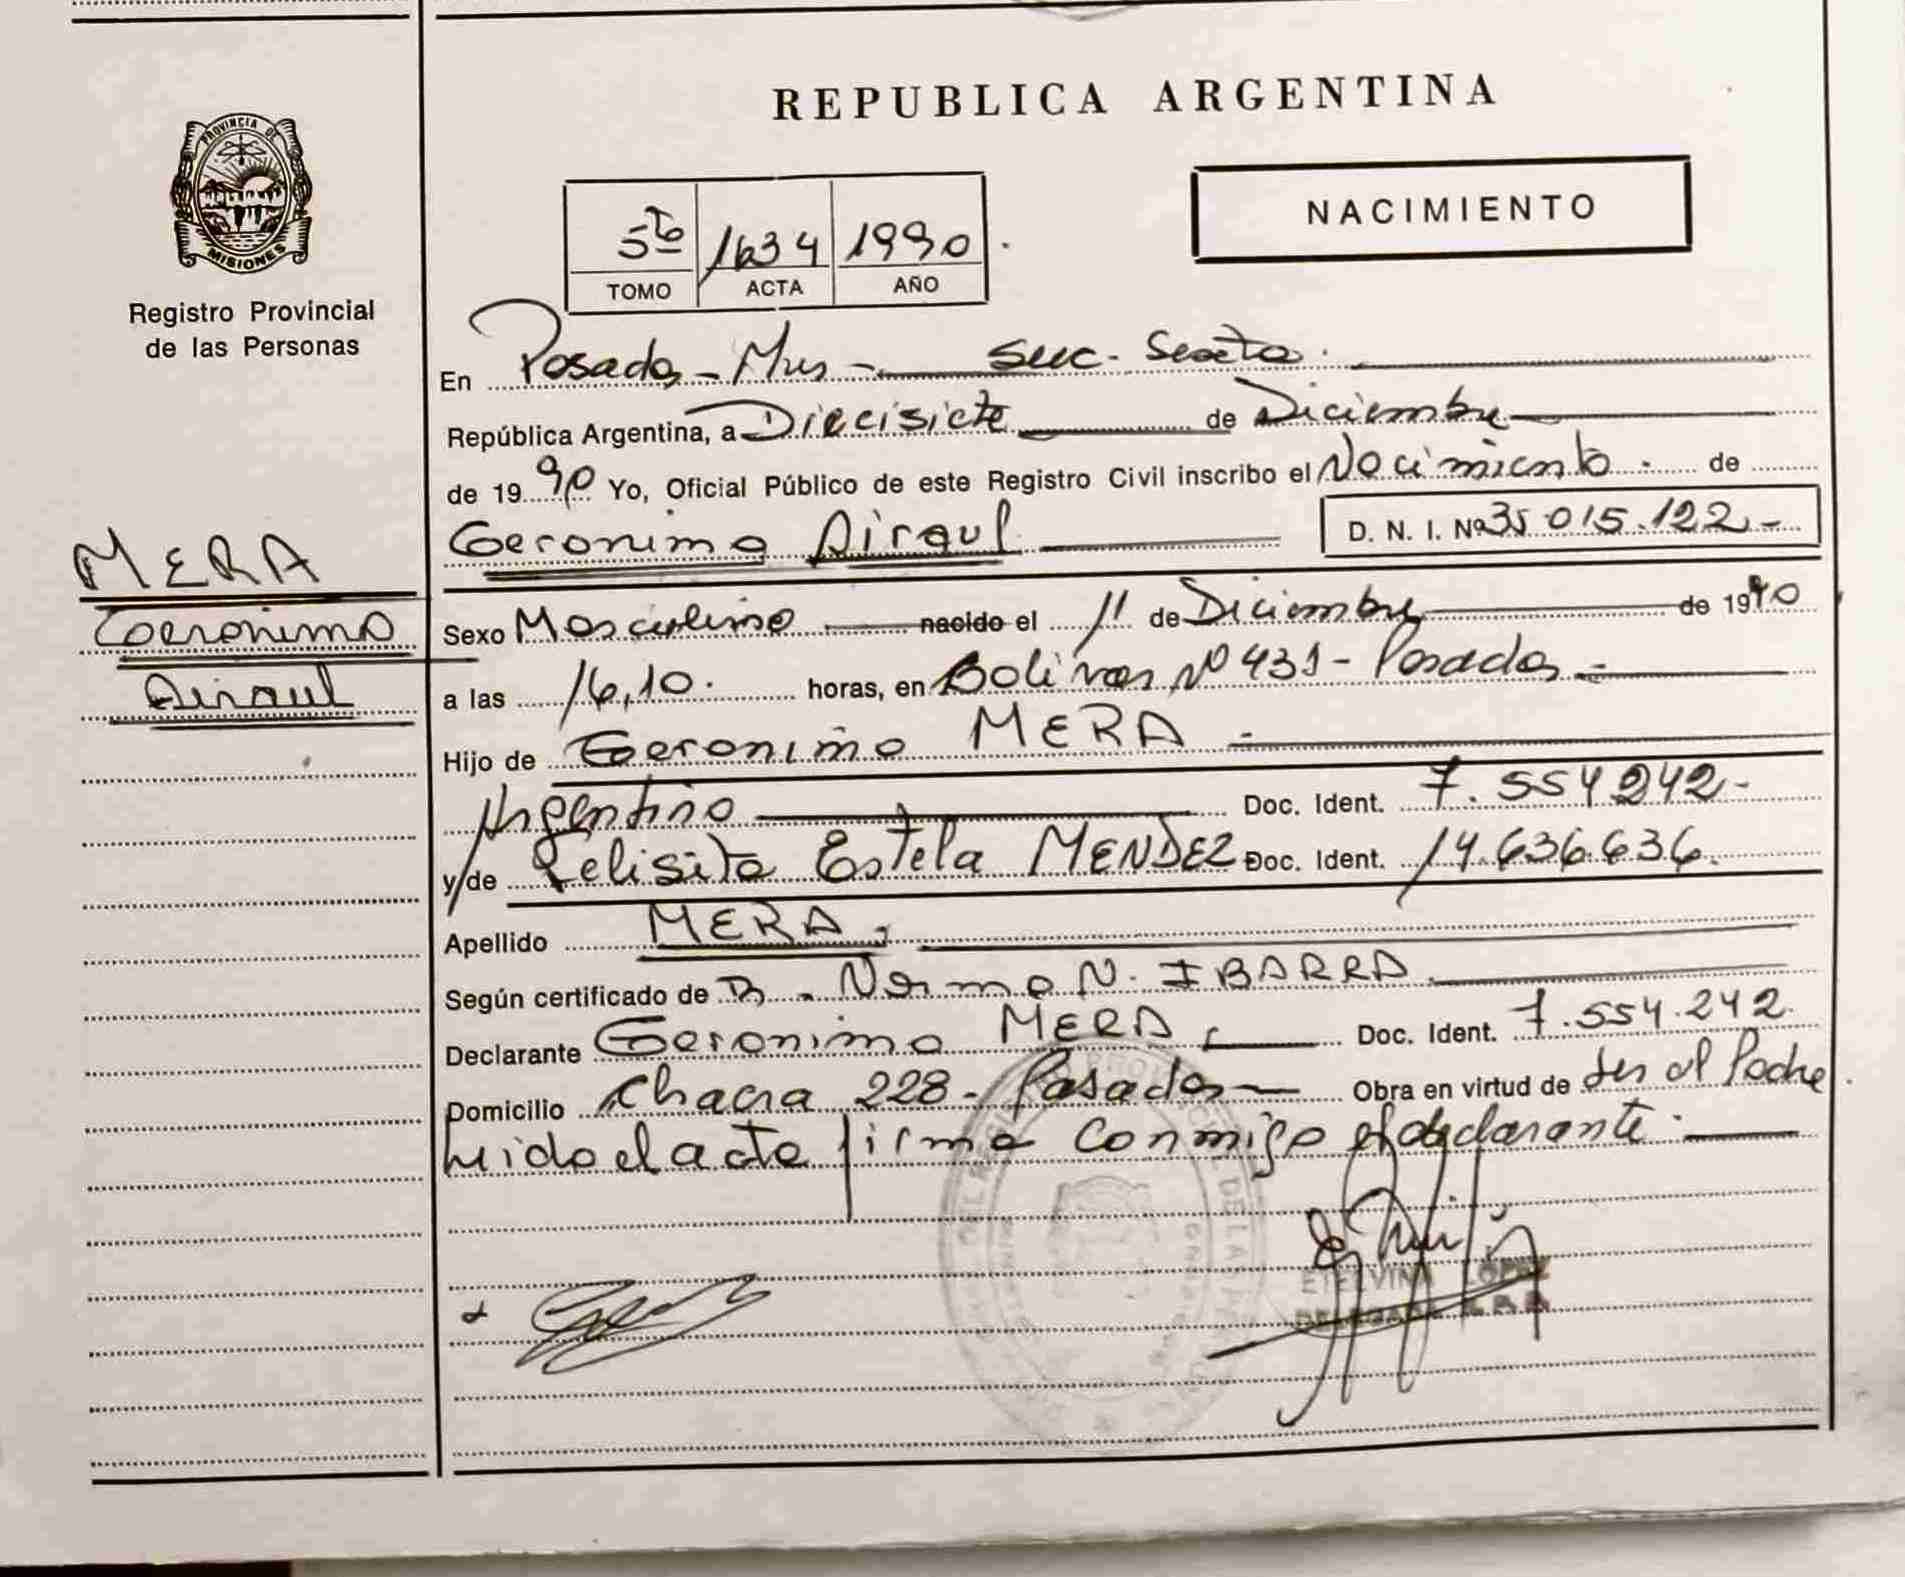 PROVINCIA DE
MISIONES
Registro Provincial
de las Personas
MERA
Geronimo
Airaul
REPUBLICA ARGENTINA
NACIMIENTO
5to 1634 1990
TOMO ACTA AÑO
En Posadas - Mnes - Succ. Sexta.
República Argentina, a Diecisiete de Diciembre
de 1990 Yo, Oficial Público de este Registro Civil inscribo el Nacimiento. de
Geronimo Airaul D. N. I. Nº 35.015.122.-
Sexo Masculino nacido el 11 de Diciembre de 1990
a las 16,10. horas, en Bolivar Nº 431 - Posadas -
Hijo de Geronimo MERA -
Argentino Doc. Ident. 7.554.242-
y/de Felisita Estela MENDEZ Doc. Ident. 14.636.636.
Apellido MERA.
Según certificado de Norma N. IBARRA
Declarante Geronimo MERA, Doc. Ident. 7.554.242.
Domicilio Chacra 228 - Posadas - Obra en virtud de ser el Padre
Leido el acta firma conmigo el declarante.
ETELVINA LOPEZ
DELEGADA